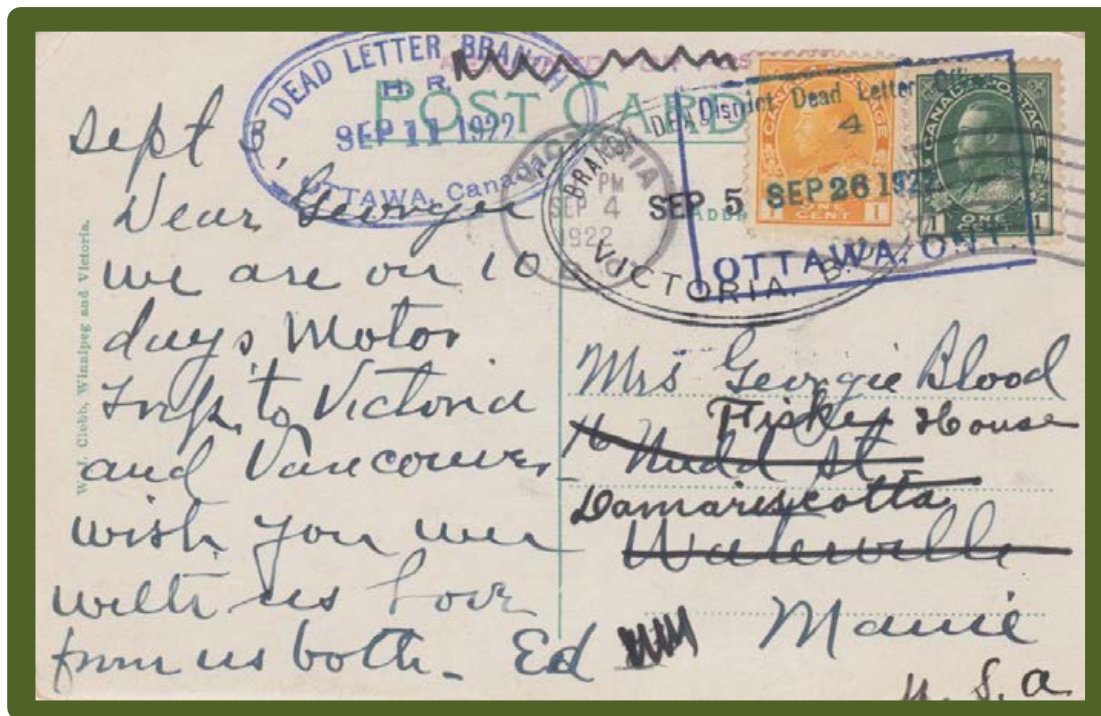 DEAD LETTER BRANCH
H. R.
SEP 11 1922
OTTAWA, Canada
POST CARD
District Dead Letter Office
4
SEP 26 1922
OTTAWA, ONT.
BRANCH DEAD
SEP 5
VICTORIA, B.C.
VICTORIA
PM
SEP 4
1922
CANADA POSTAGE
1 ONE CENT 1
CANADA POSTAGE
1 ONE 1
ADDR
W. J. Clebb, Winnipeg and Victoria.
Sept 3,
Dear Georgie
we are on 10
days Motor
Trip to Victoria
and Vancouver
wish you were
with us Love
from us both - Ed
Mrs Georgie Blood
Fiske House
16 Nudd St.
Damariscotta
Waterville
Maine
U. S. a.